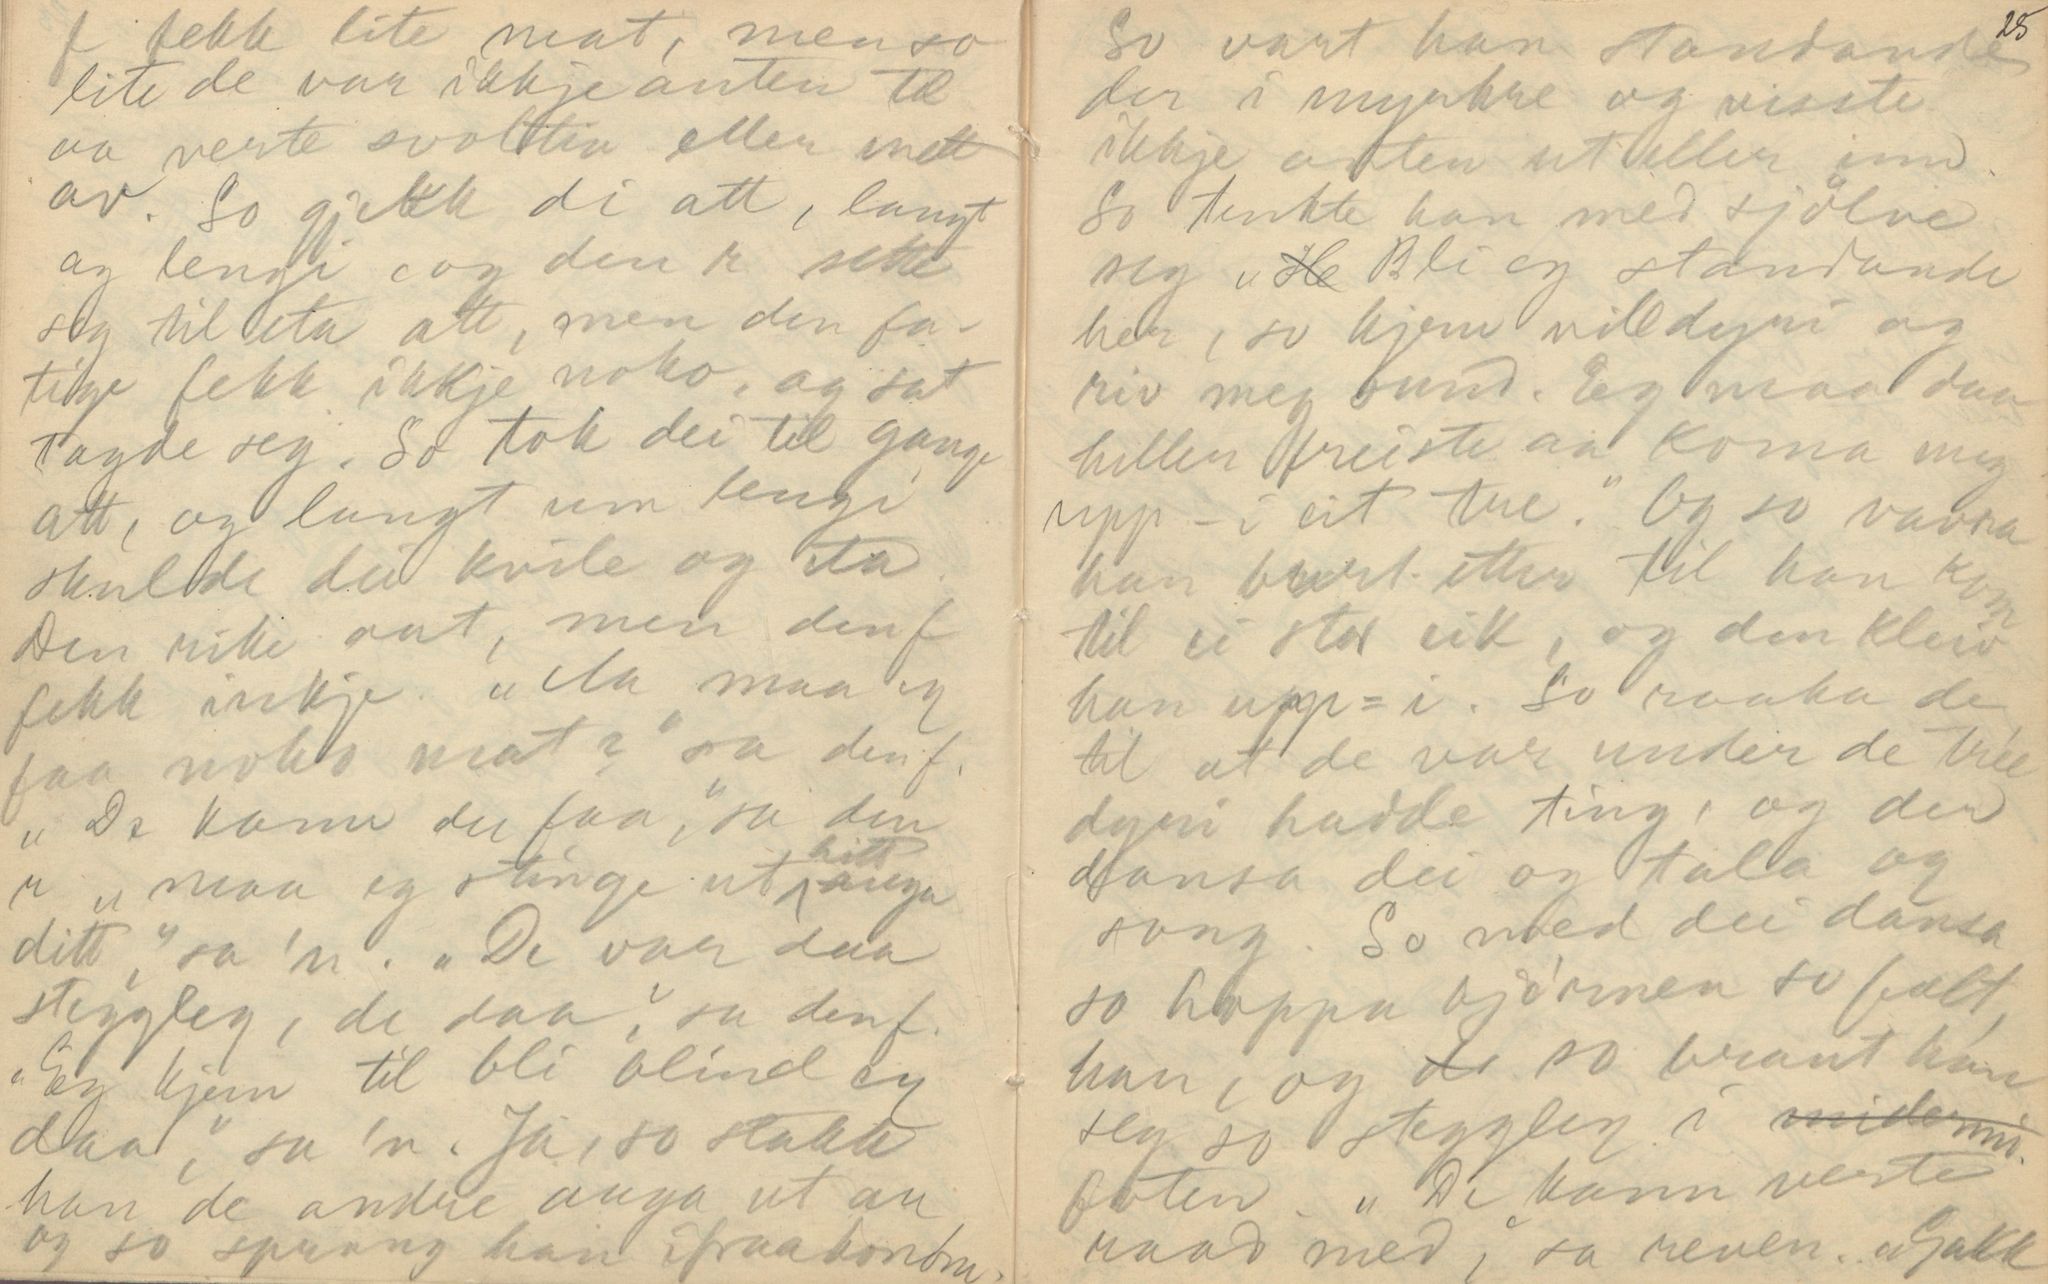 f fekk lite mat, men so
lite de var ikkje anten til
aa verte svolten eller mett
av. So gjekk di att, langt
og lengi, og den r sette
seg til eta att, men den fa-
tige fekk ikkje noko, og sat
tagde seg. So tok dei til gange
att, og langt um lengi
skulde dei kvile og eta.
Den rike aat, men den f
fekk inkje. „Aa maa eg
faa noko mat?" sa den f.
„De kann du faa," sa den
r „maa eg stinge ut hitt auga
ditt," sa 'n. „De var daa
styggleg, de daa", sa den f.
„Eg kjem til bli blind eg
daa", sa 'n. Ja, so stakk
han de andre auga ut au
og so sprang han ifraa honom.
25
So vart han standande
der i myrkre og visste
ikkje anten ut eller inn.
So tenkte han med sjölve
seg „He Bli eg standande
her, so kjem villdyri og
riv meg sund. Eg maa daa
heller freiste aa koma meg
upp-i eit tre." Og so vavra
han burt-etter til han kom
til ei stor eik, og den kleiv
han upp=i. So raaka de
til at de var under de tree
dyri hadde ting, og der
dansa dei og tala og
song. So med dei dansa
so hoppa bjørnen so fælt,
han, og de so brant han
seg so stygglег i
foten. „De kann verte
raad med," sa reven. „Gakk